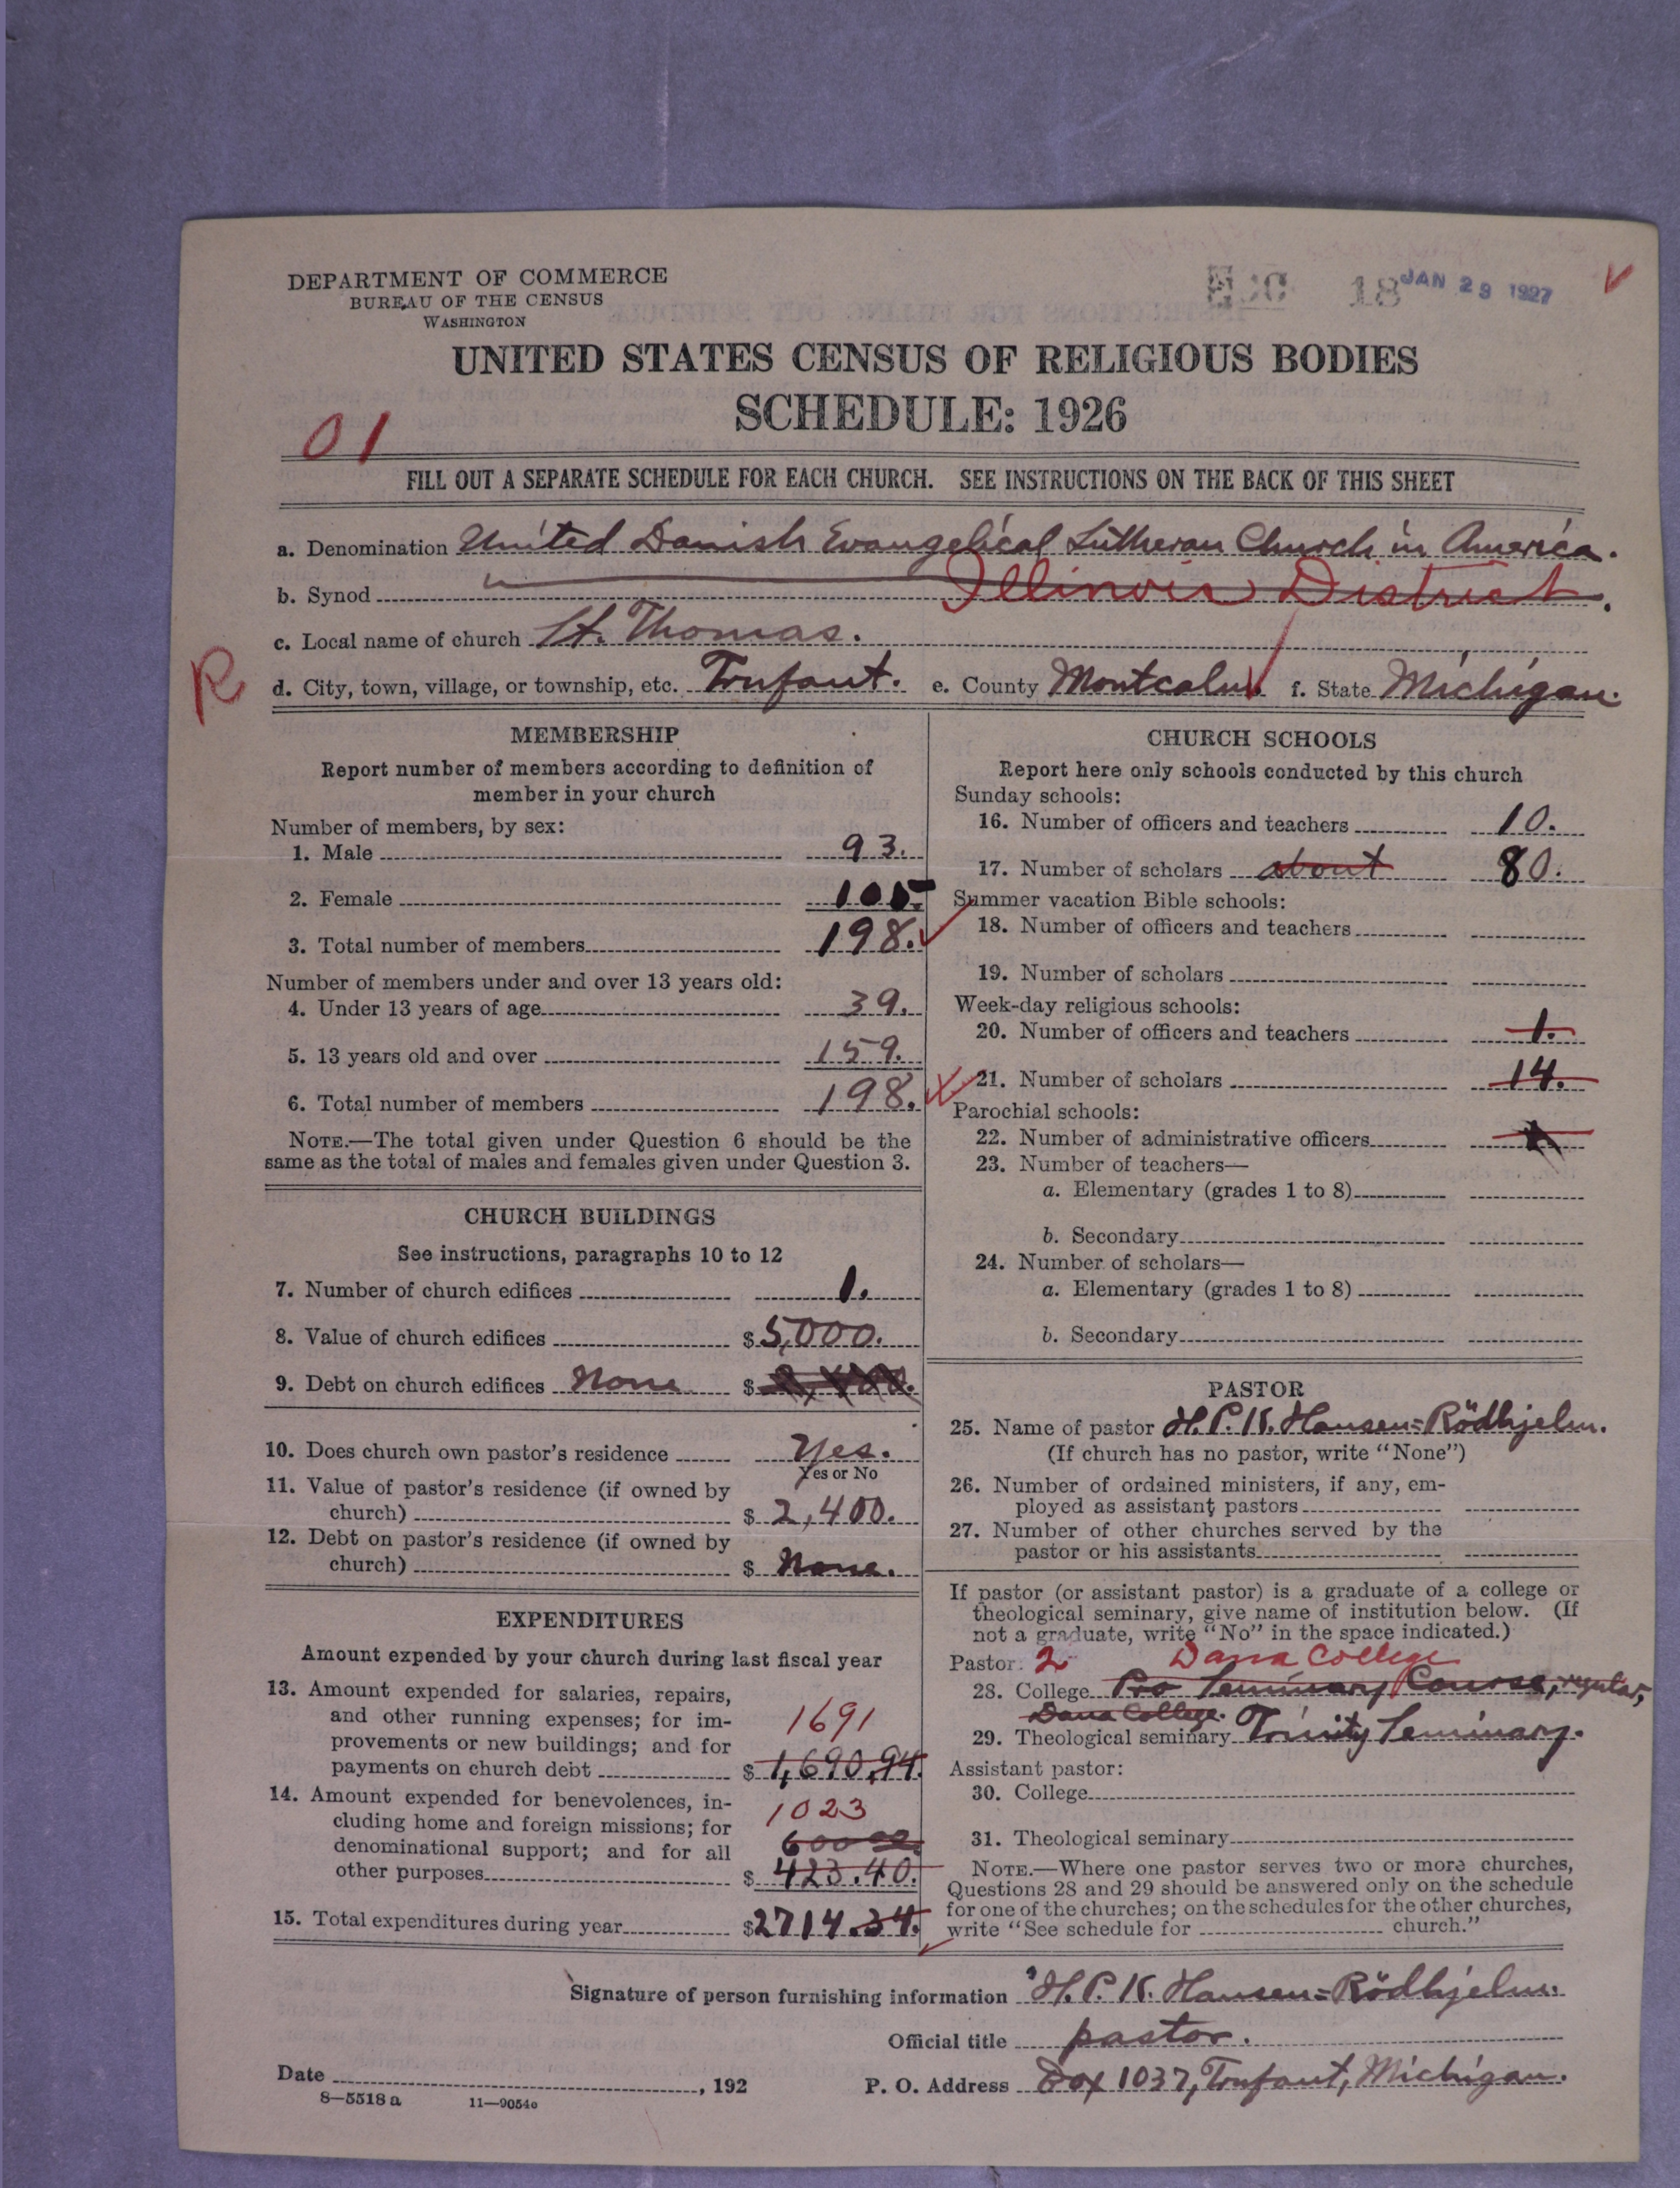 DEPARTMENT OF COMMERCE
BUREAU OF THE CENSUS
WASHINGTON
18 JAN 29 1927
UNITED STATES CENSUS OF RELIGIOUS BODIES
SCHEDULE: 1926
01
FILL OUT A SEPARATE SCHEDULE FOR EACH CHURCH. SEE INSTRUCTIONS ON THE BACK OF THIS SHEET
a. Denomination United Danish Evangelical Lutheran Church in America.
b. Synod Illinois District.
c. Local name of church St. Thomas.
R
d. City, town, village, or township, etc. Trufant. e. County Montcalm f. State Michigan.
MEMBERSHIP
Report number of members according to definition of
member in your church
Number of members, by sex:
1. Male 93.
2. Female 105
3. Total number of members 198.
Number of members under and over 13 years old:
4. Under 13 years of age 39.
5. 13 years old and over 159.
6. Total number of members 198.
NOTE.—The total given under Question 6 should be the
same as the total of males and females given under Question 3.
CHURCH BUILDINGS
See instructions, paragraphs 10 to 12
7. Number of church edifices 1.
8. Value of church edifices $ 5,000.
9. Debt on church edifices None $
10. Does church own pastor's residence Yes.
Yes or No
11. Value of pastor's residence (if owned by
church) $ 2,400.
12. Debt on pastor's residence (if owned by
church) $ None.
EXPENDITURES
Amount expended by your church during last fiscal year
13. Amount expended for salaries, repairs,
and other running expenses; for im-
provements or new buildings; and for 1691
payments on church debt $ 1,690.94.
14. Amount expended for benevolences, in-
cluding home and foreign missions; for 1023
denominational support; and for all 600
other purposes $ 423.40.
15. Total expenditures during year $2714.34.
CHURCH SCHOOLS
Report here only schools conducted by this church
Sunday schools:
16. Number of officers and teachers 10.
17. Number of scholars about 80.
Summer vacation Bible schools:
18. Number of officers and teachers
19. Number of scholars
Week-day religious schools:
20. Number of officers and teachers 1.
21. Number of scholars 14.
Parochial schools:
22. Number of administrative officers
23. Number of teachers—
a. Elementary (grades 1 to 8)
b. Secondary
24. Number of scholars—
a. Elementary (grades 1 to 8)
b. Secondary
PASTOR
25. Name of pastor H. P. K. Hansen=Rödhjelm.
(If church has no pastor, write "None")
26. Number of ordained ministers, if any, em-
ployed as assistant pastors
27. Number of other churches served by the
pastor or his assistants
If pastor (or assistant pastor) is a graduate of a college or
theological seminary, give name of institution below. (If
not a graduate, write "No" in the space indicated.)
Pastor: 2 Dana College
28. College Pro Seminary Course, regular,
Dana College.
29. Theological seminary Trinity Seminary.
Assistant pastor:
30. College
31. Theological seminary
NOTE.—Where one pastor serves two or more churches,
Questions 28 and 29 should be answered only on the schedule
for one of the churches; on the schedules for the other churches,
write "See schedule for church."
Signature of person furnishing information H. P. K. Hansen=Rödhjelm.
Official title pastor.
Date , 192
P. O. Address Box 1037, Trufant, Michigan.
8—5518 a 11—9054e